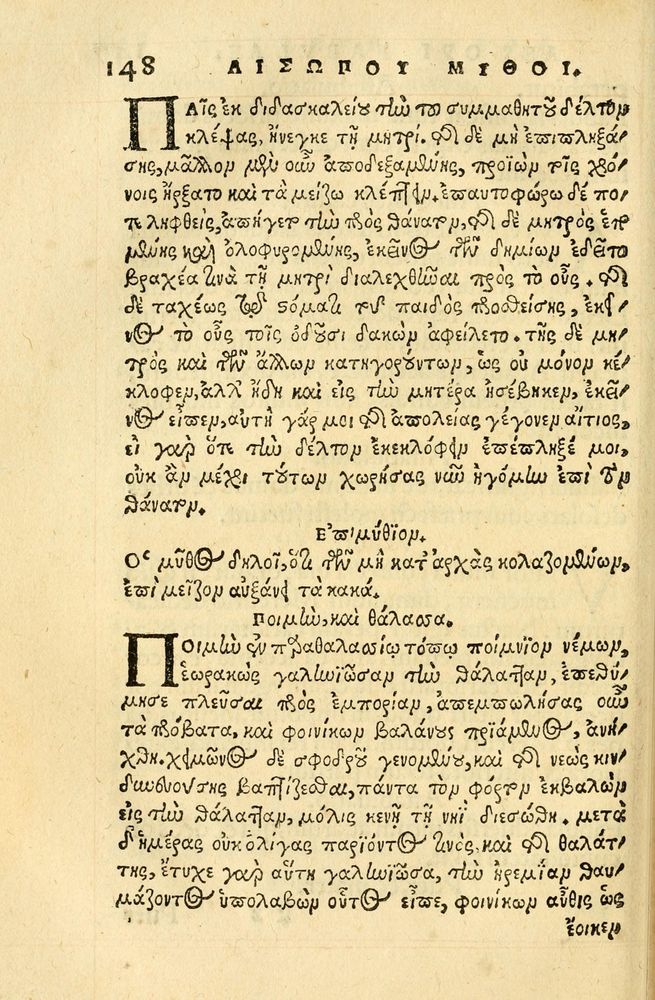 148 ΑΙΣΩΠΟΥ ΜΥΘΟΙ.
ΠΑῖς ἐκ διδασκαλείου τὴν τοῦ συμμαθητοῦ δέλτον
κλέψας, ἤνεγκε τῇ μητρί. τῆς δὲ μὴ ἐπιπληξά-
σης, μᾶλλον μὲν οὖν ἀποδεξαμένης, προϊὼν τοῖς χρό-
νοις ἤρξατο καὶ τὰ μείζω κλέπτειν. ἐπαυτοφώρῳ δέ πο-
τε ληφθεὶς, ἀπήγετο τὴν πρὸς θάνατον, τῆς δὲ μητρὸς ἑπο-
μένης καὶ ὀλοφυρομένης, ἐκεῖνος τῶν δημίων ἐδεῖτο
βραχέα τινὰ τῇ μητρὶ διαλεχθῆναι πρὸς τὸ οὖς. τῆς
δὲ ταχέως τῷ στόματι τοῦ παιδὸς προσθείσης, ἐκεῖ-
νος τὸ οὖς τοῖς ὀδοῦσι δακὼν ἀφείλετο. τῆς δὲ μη-
τρὸς καὶ τῶν ἄλλων κατηγορούντων, ὡς οὐ μόνον κέ-
κλοφεν, ἀλλ' ἤδη καὶ εἰς τὴν μητέρα ἠσέβηκεν, ἐκεῖ-
νος εἶπεν, αὐτὴ γάρ μοι τῆς ἀπολείας γέγονεν αἴτιος,
εἰ γὰρ ὅτε τὴν δέλτον ἐκεκλόφειν ἐπέπληξέ μοι,
οὐκ ἂν μέχρι τούτων χωρήσας νῦν ἠγόμην ἐπὶ τὸν
θάνατον.
Επιμύθιον.
Ὁ μῦθος δηλοῖ, ὅτι τῶν μὴ κατ' ἀρχὰς κολαζομένων,
ἐπὶ μεῖζον αὐξάνει τὰ κακά.
Ποιμὴν, καὶ θάλασσα.
ΠΟιμὴν ἐν παραθαλασσίῳ τόπῳ ποίμνιον νέμων,
ἑωρακὼς γαληνιῶσαν τὴν θάλατταν, ἐπεθύ-
μησε πλεῦσαι πρὸς ἐμπορίαν, ἀπεμπωλήσας οὖν
τὰ πρόβατα, καὶ φοινίκων βαλάνους πριάμενος, ἀνή-
χθη. χειμῶνος δὲ σφοδροῦ γενομένου, καὶ τῆς νεὼς κιν-
δυνευούσης βαπτίζεσθαι, πάντα τὸν φόρτον ἐκβαλὼν
εἰς τὴν θάλατταν, μόλις κενῇ τῇ νηῒ διεσώθη. μετὰ
δ' ἡμέρας οὐκ ὀλίγας παριόντος τινὸς, καὶ τῆς θαλάτ-
της, ἔτυχε γὰρ αὕτη γαληνιῶσα, τὴν ἠρεμίαν θαυ-
μάζοντος ὑπολαβὼν οὗτος εἶπε, φοινίκων αὖθις ὡς
ἔοικεν